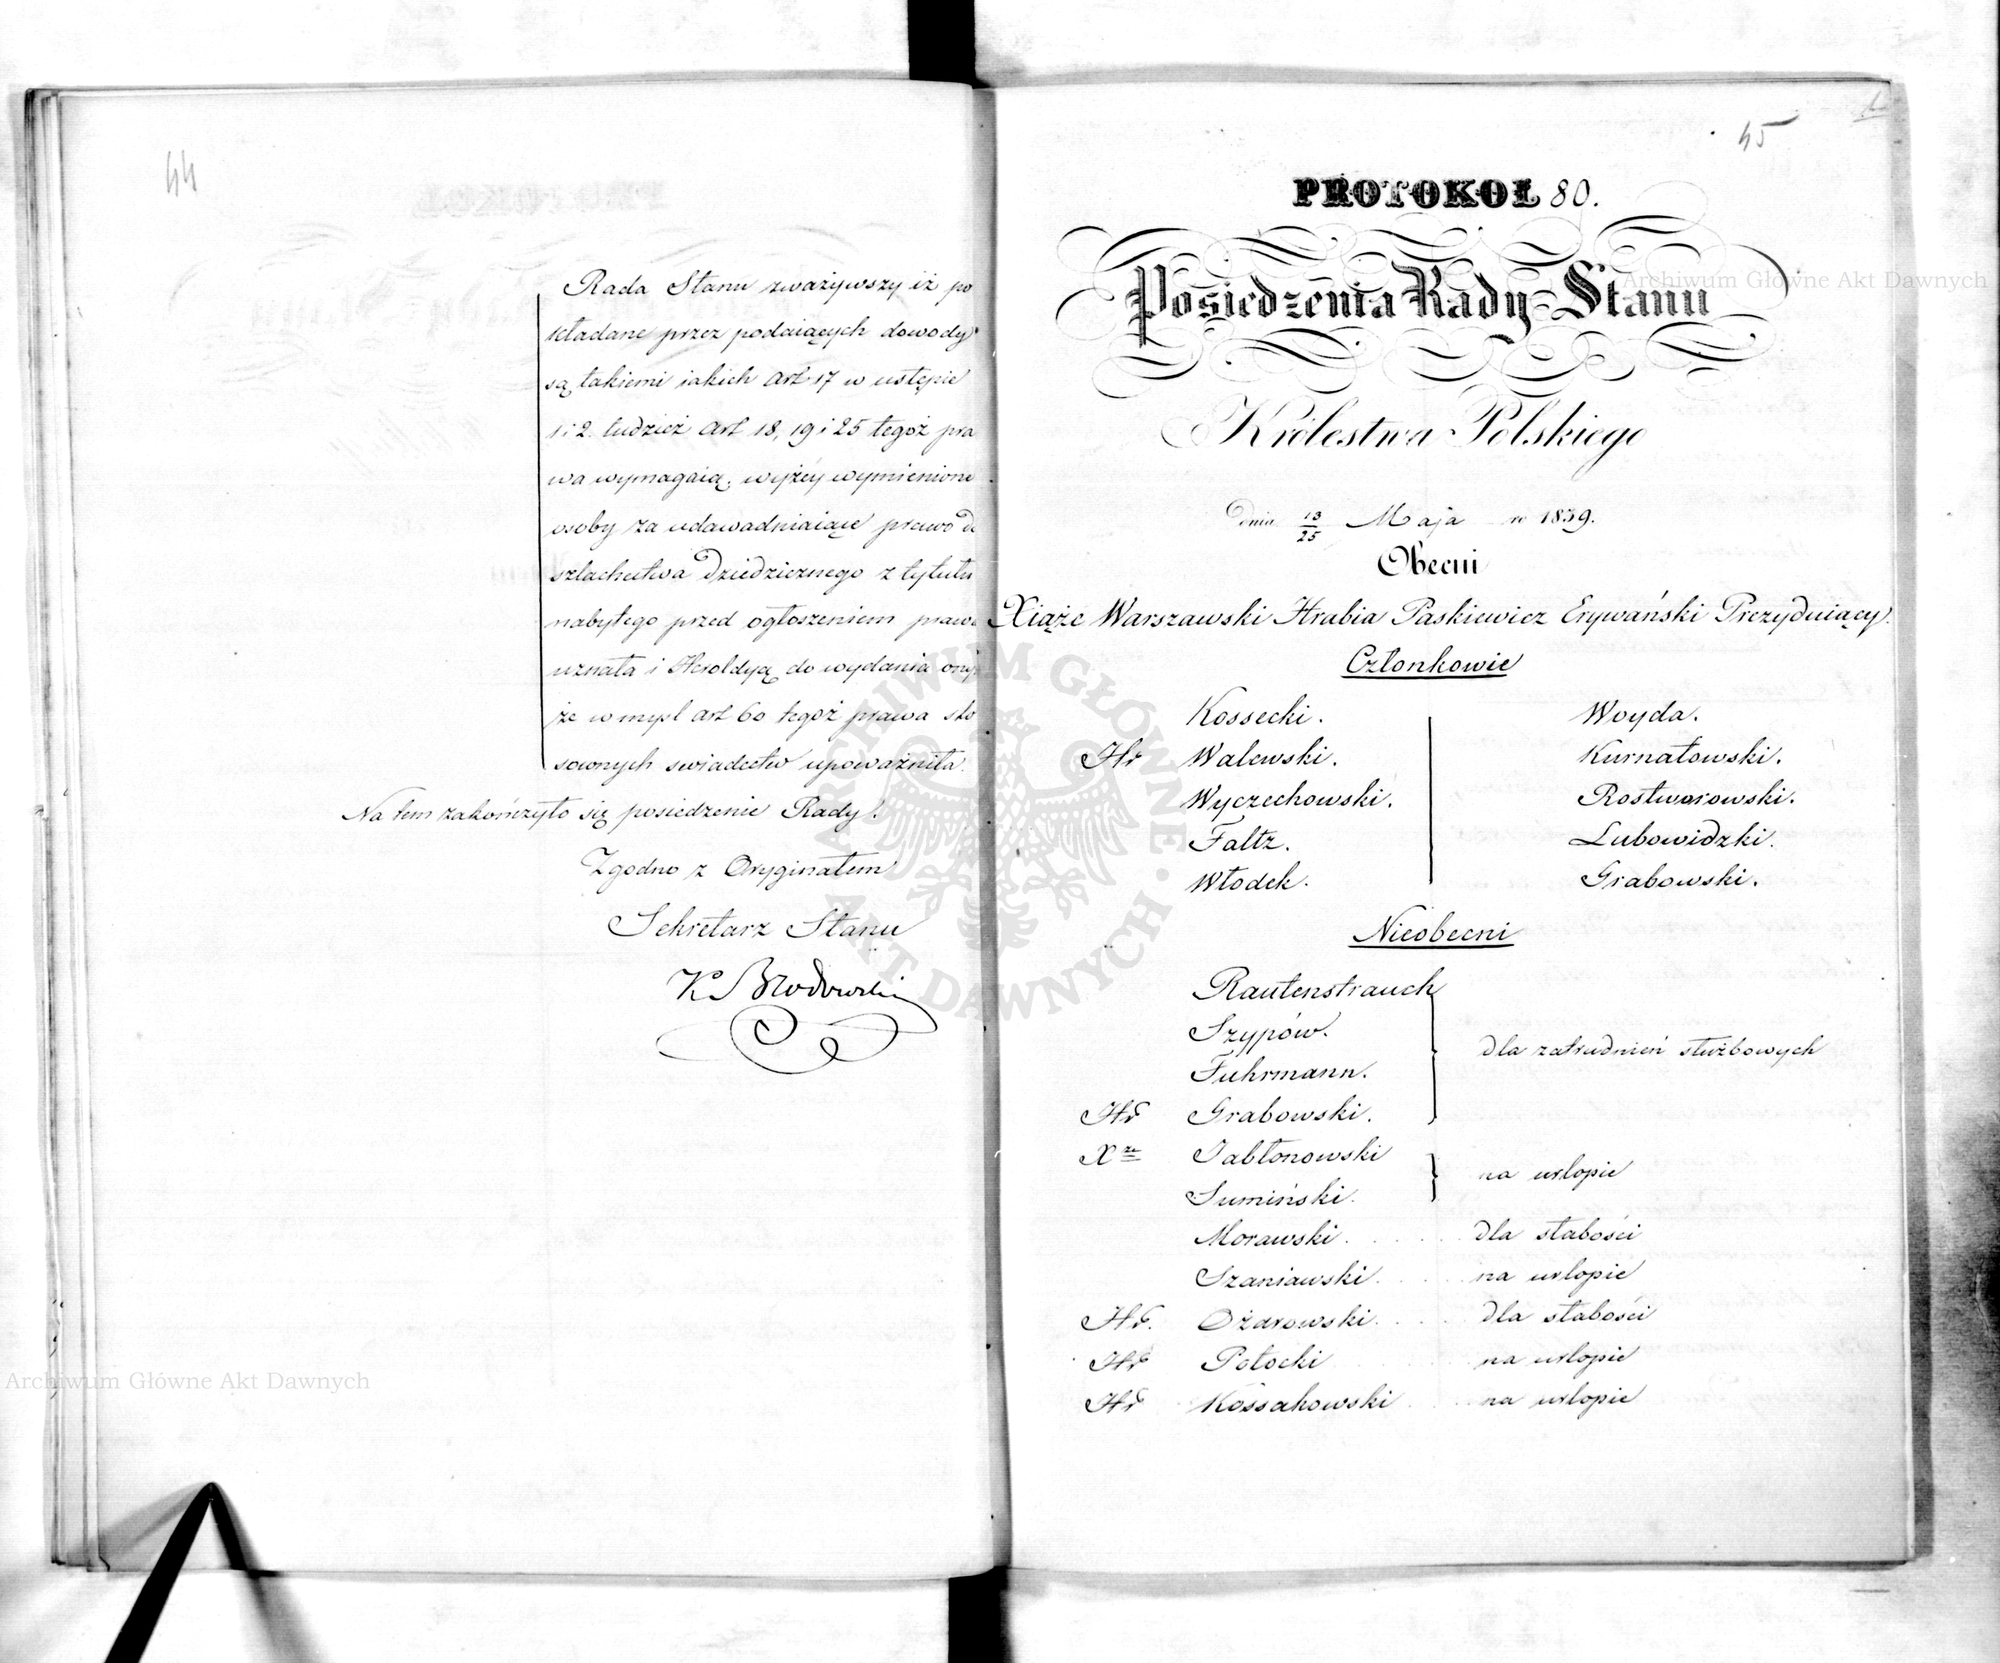 44
Rada Stanu zważywszy iż po
kładane przez podaiących dowody
są takiemi iakich art 17 w ustępie
1 i 2. tudzież art 18, 19 i 25 tegoż pra
wa wymagaią, wyżéy wymienione
osoby za udawadniaiące prawo do
szlachectwa dziedzicznego z tytułu
nabytego przed ogłoszeniem prawa
uznała i Heroldyą do wydania
że w myśl art 60 tegoż prawa sto
sownych swiadectw upoważniła.
Na tem zakończyło się posiedzenie Rady.
Zgodno z Oryginałem
Sekretarz Stanu
K Brodowski
45
PROTOKOŁ 80.
Posiedzenia Rady Stanu
Królestwa Polskiego
dnia 13/25 Maja r 1839.
Obecni
Xiąże Warszawski Hrabia Paskiewicz Erywański Prezyduiący.
Członkowie
Kossecki. Woyda.
Hr Walewski. Kurnatowski.
Wyczechowski. Rostworowski.
Faltz. Lubowidzki.
Włodek. Grabowski.
Nieobecni
Rautenstrauch
Szypów.
Fuhrmann. dla zatrudnień służbowych
Hr Grabowski.
Xze Jabłonowski
Sumiński. na urlopie
Morawski . . . . dla słabości
Szaniawski . . . . na urlopie
Hr. Ożarowski . . . . dla słabości
Hr Potocki na urlopie
Hr Kossakowski . . . na urlopie
Archiwum Główne Akt Dawnych
Archiwum Główne Akt Dawnych
ARCHIWUM GŁÓWNE AKT DAWNYCH